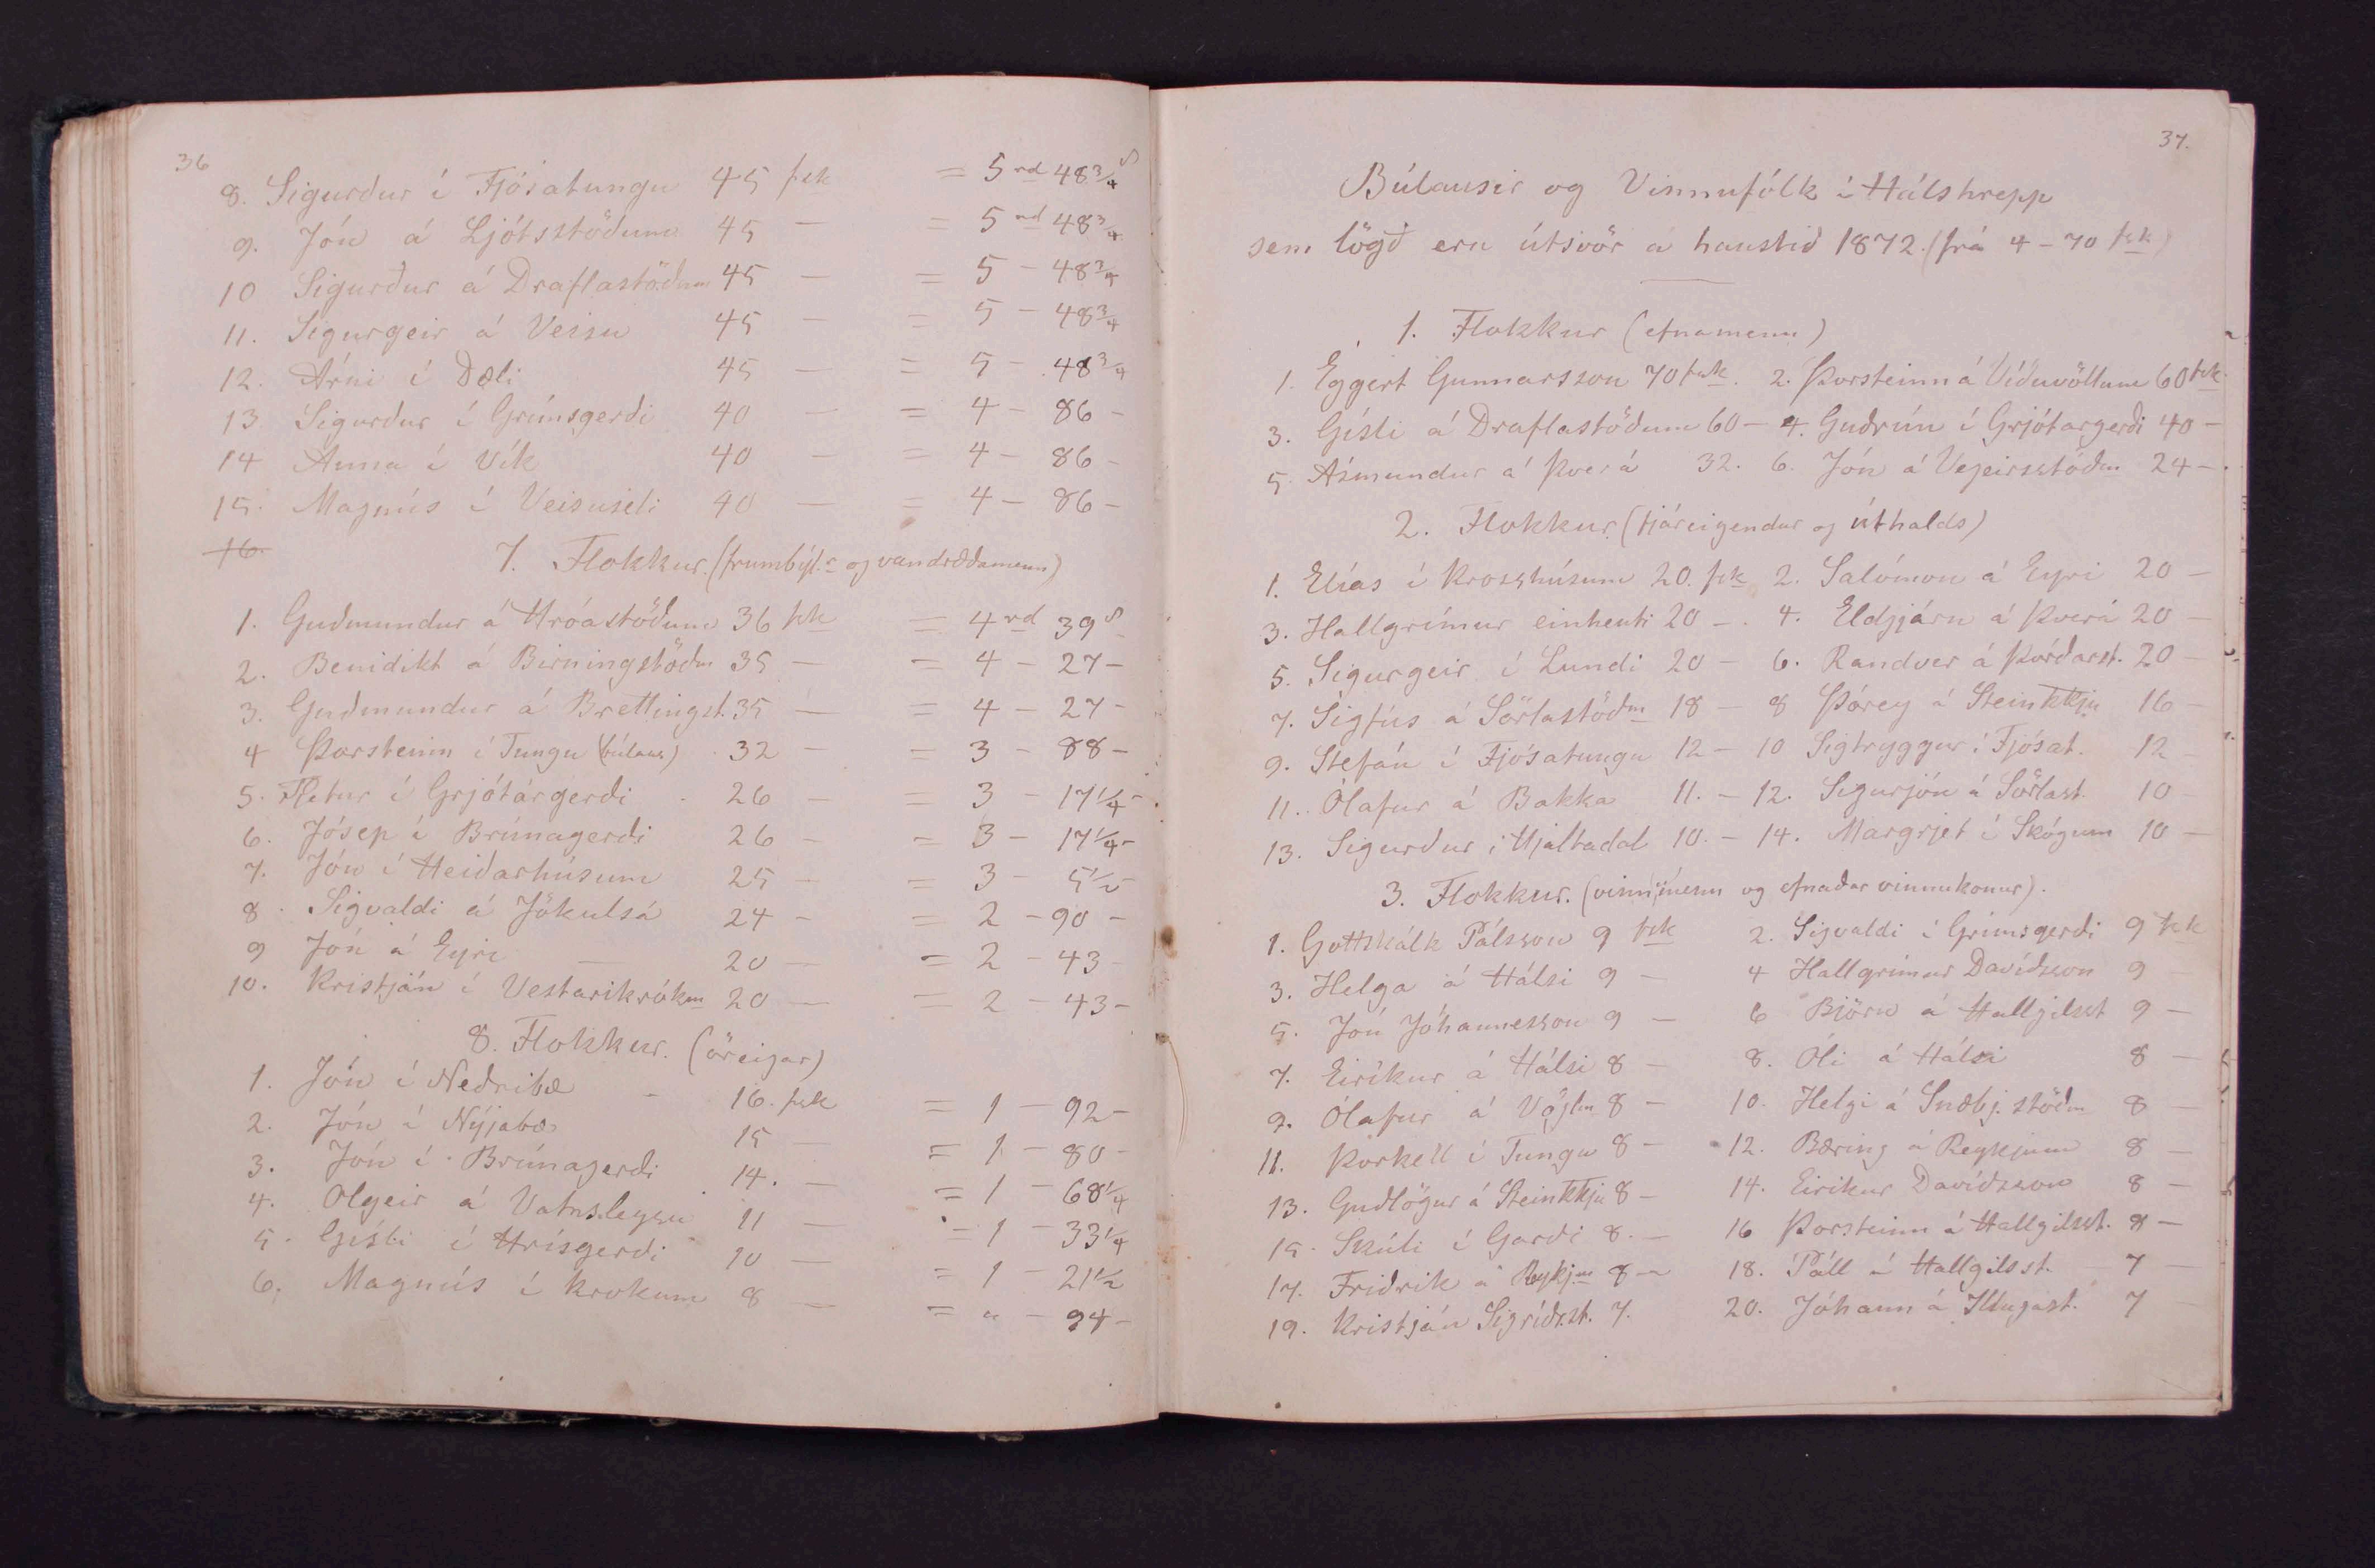 36
8. Sigurður í Fjósatungu 45 fsk = 5 rd 48 3/4 s
9. Jón á Ljótsstöðum 45 — = 5 rd 48 3/4
10 Sigurður á Draflastöðum 45 — = 5 — 48 3/4
11. Sigurgeir á Veisu 45 — = 5 — 48 3/4
12. Árni í Dæli 45 — = 5 — 48 3/4
13. Sigurður í Grímsgerði 40 — = 4 — 86 —
14 Anna í Vík 40 — = 4 — 86 —
15. Magnús í Veisuseli 40 — = 4 — 86 —
16.
7. Flokkur. (frumbýl.r og vandræðamenn)
1. Guðmundur á Hróastöðum 36 fsk = 4 rd 39 s
2. Benidikt á Birningstöðm 35 — = 4 — 27 —
3. Guðmundur á Brettingst. 35 — = 4 — 27 —
4 Þorsteinn í Tungu (búlaus) 32 — = 3 — 88 —
5. Pjetur í Grjótárgerði 26 — = 3 — 17 1/4 —
6. Jósep í Brúnagerði 26 — = 3 — 17 1/4 —
7. Jón í Heiðarhúsum 25 — = 3 — 5 1/2
8. Sigvaldi á Jökulsá 24 — = 2 — 90 —
9 Jón á Eyri — 20 — = 2 — 43 —
10. Kristján í Vestarikrókm 20 — = 2 — 43 —
8. Flokkur. (öreigar)
1. Jón í Neðribæ - 16. fsk = 1 — 92 —
2. Jón í Nýjabæ 15 — = 1 — 80 —
3. Jón í Brúnagerði 14. — = 1 — 68 1/4
4. Olgeir á Vatnsleysu 11 — = 1 — 33 1/4
5. Gísli í Hrísgerði 10 — = 1 — 21 1/2
6. Magnús í Krokum 8 — = " — 94 —
37.
Búlausir og Vinnufólk í Hálshrepp
sem lögð eru útsvör á haustið 1872. (frá 4 - 70 fsk)
1. Flokkur (efnamenn)
1. Eggert Gunnarsson 70 fsk. 2. Þorsteinn á Víðuvöllum 60 fsk.
3. Gísli á Draflastöðum 60 — 4. Guðrún í Grjótargerði 40 —
5. Ásmundur á Þverá 32. 6. Jón á Vegeirsstöðm 24 —
2. Flokkur. (fjáreigendur og úthalds)
1. Elías í Krosshúsum 20. fsk 2. Salómon á Eyri 20 —
3. Hallgrímur einhenti 20 — 4. Eldjárn á Þverá 20 —
5. Sigurgeir í Lundi 20 — 6. Randver á Þórðarst. 20 —
7. Sigfús á Sörlastöðm 18 — 8 Þórey á Steinkkju 16 —
9. Stefán í Fjósatungu 12 — 10 Sigtryggur í Fjósat. 12
11. Ólafur á Bakka 11. — 12. Sigurjón á Sörlast. 10 —
13. Sigurður í Hjaltadal 10. — 14. Margrjet í Skógum 10 —
3. Flokkur. (vinnumenn og efnaðar vinnukonur).
1. Gottskálk Pálsson 9 fsk 2. Sigvaldi í Grímsgerði 9 fsk
3. Helga á Hálsi 9 — 4 Hallgrímur Davíðsson 9 —
5. Jón Jóhannesson 9 — 6 Björn á Hallgilsst 9 —
7. Eiríkur á Hálsi 8 — 8. Óli á Hálsi 8 —
9. Ólafur á Vöglm 8 — 10. Helgi á Snæbj. stöðm 8 —
11. Þorkell í Tungu 8 — 12. Bæring á Reykjum 8 —
13. Guðlögur á Steinkkju 8 — 14. Eirikur Davíðsson 8 —
15. Skúli í Garði 8. — 16 Þorsteinn á Hallgilsst. 8 —
17. Friðrik á Reykjum 8 — 18. Páll á Hallgilsst. 7 —
19. Kristján Sigríðst. 7. 20. Jóhann á Illugast. 7 —